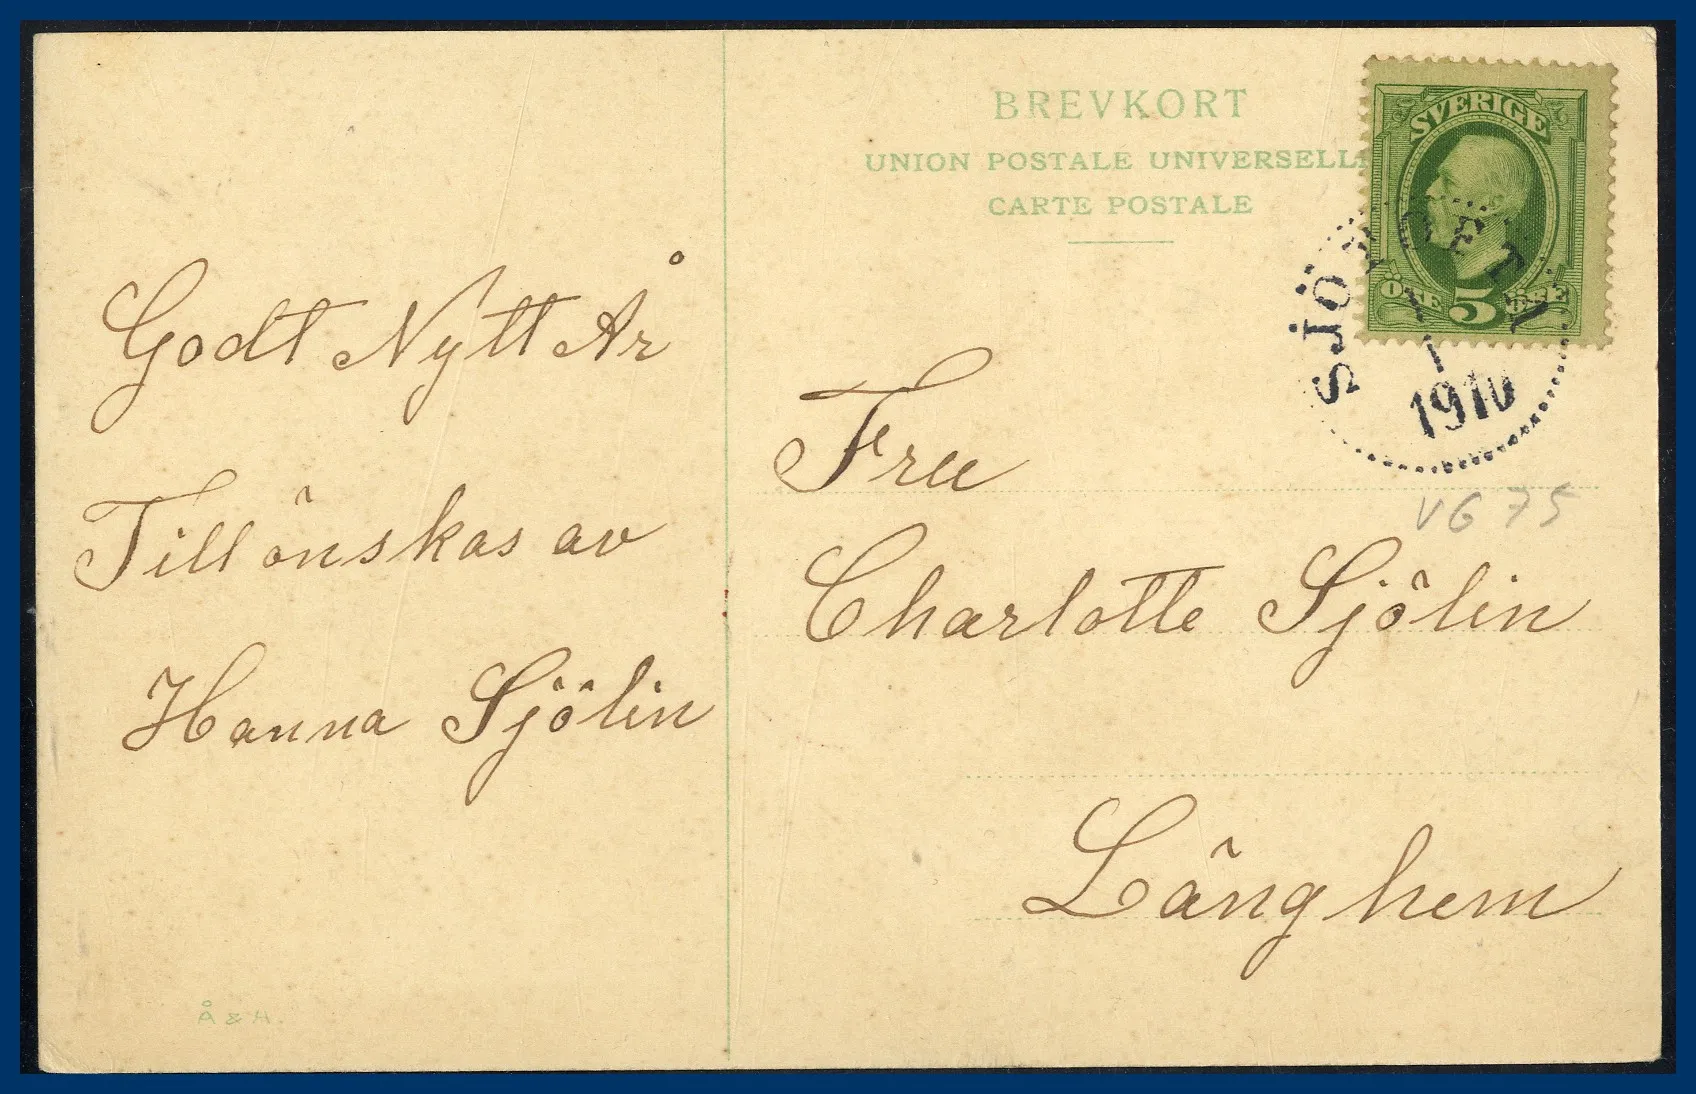 BREVKORT
UNION POSTALE UNIVERSELLE
CARTE POSTALE
SVERIGE
ÖRE 5 ÖRE
1910
VG 75
Godt Nytt År
Tillönskas av
Hanna Sjölin
Fru
Charlotte Sjölin
Långhem
Å & H.